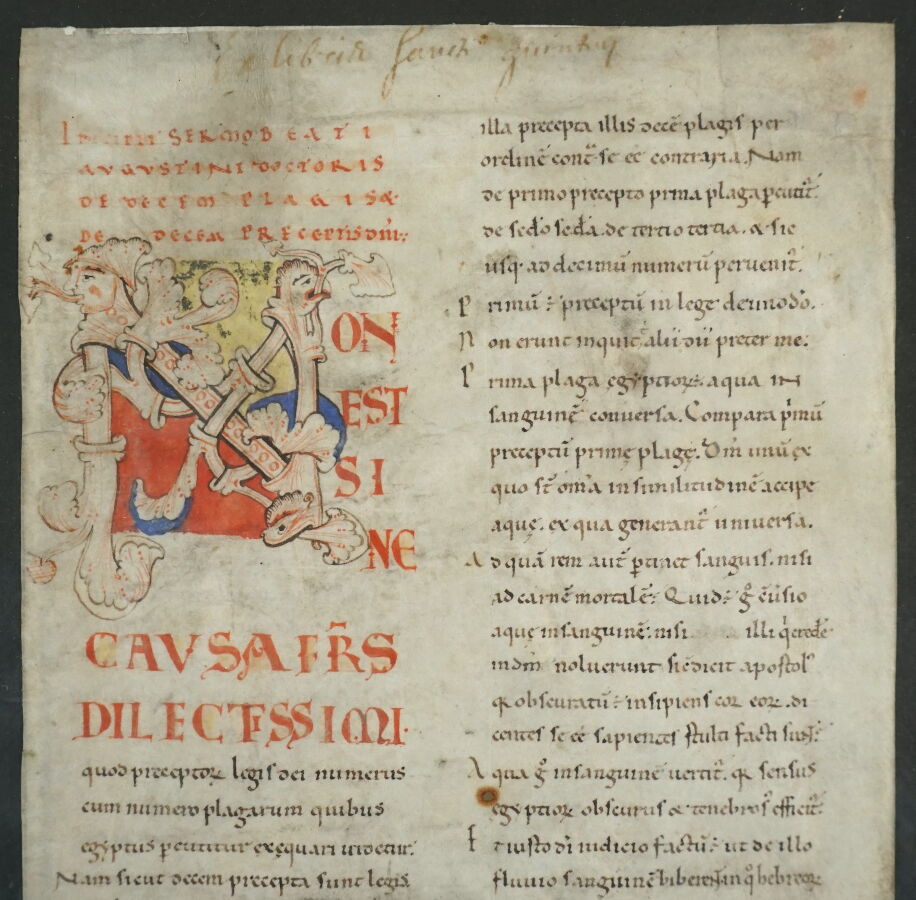 Ex libris Sancti Quintini
INCIPIT SERMO BEATI
AVGVSTINI DOCTORIS
DE DECEM PLAGIS &
DE DECEM PRECEPTIS DNI:
NON
EST
SI
NE
CAVSA FRS
DILECTISSIMI.
quod preceptoꝝ legis dei numerus
cum numero plagarum quibus
egyptus ꝑcutitur exequari uidetur.
Nam sicut decem precepta sunt legis
illa precepta illis decē plagis per
ordinē cont̄ se ēē contraria. Nam
de primo precepto prima plaga ꝑcutit̄.
de scd̄o scd̄a. de tertio tertia. & sic
usq; ad decimū numerū peruenit̄.
Primū ē preceptū in lege de uno dō.
Non erunt inquit alii dii preter me.
Prima plaga egyptioꝝ aqua in
sanguinē conuersa. Compara p̄mū
preceptū primę plagę. Dm̄ unū ex
quo st̄ om̄a in similitudinē accipe
aquę. ex qua generant̄ uniuersa.
Ad quā rem aut̄ ꝑtinet sanguis. nisi
ad carnē mortalē. Quid ē g̊ c̄uersio
aquę in sanguinē. nisi illi
in dm̄ noluerunt sic dicit apostol᷒
q; obscuratū ē insipiens cor eoꝝ. di
centes se ēē sapientes stulti facti sūs:
Aqua g̊ in sanguinē uertit̄. q; sensus
egyptioꝝ obscurus & tenebros᷒ efficit̄.
Et iusto di iudicio factū ē ut de illo
fluuio sanguinē biberent in q̊ hebreoꝝ